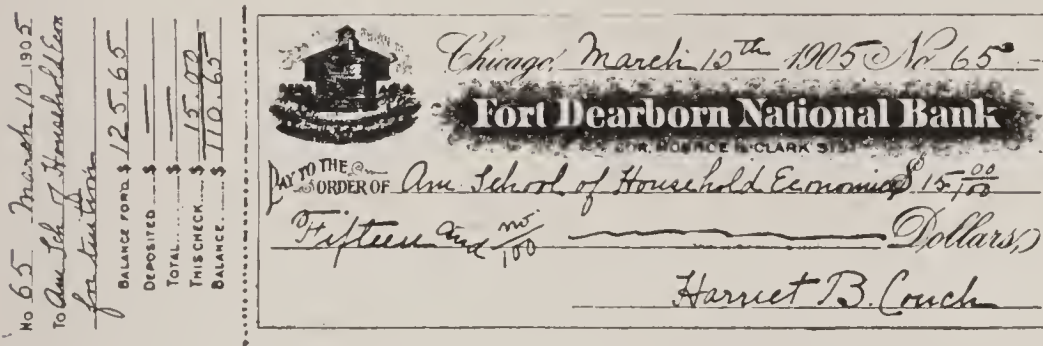 No 65 March 10 1905
To Am Sch of Household Econ
for tuition
BALANCE FOR'D $ 125.65
DEPOSITED $
TOTAL $
THIS CHECK $ 15.00
BALANCE $ 110.65
Chicago, March 10th 1905 No 65
Fort Dearborn National Bank
COR. MONROE & CLARK STS.
PAY TO THE
ORDER OF Am. School of Household Economics $ 15 00/100
Fifteen and no/100 Dollars
Harriet B. Couch